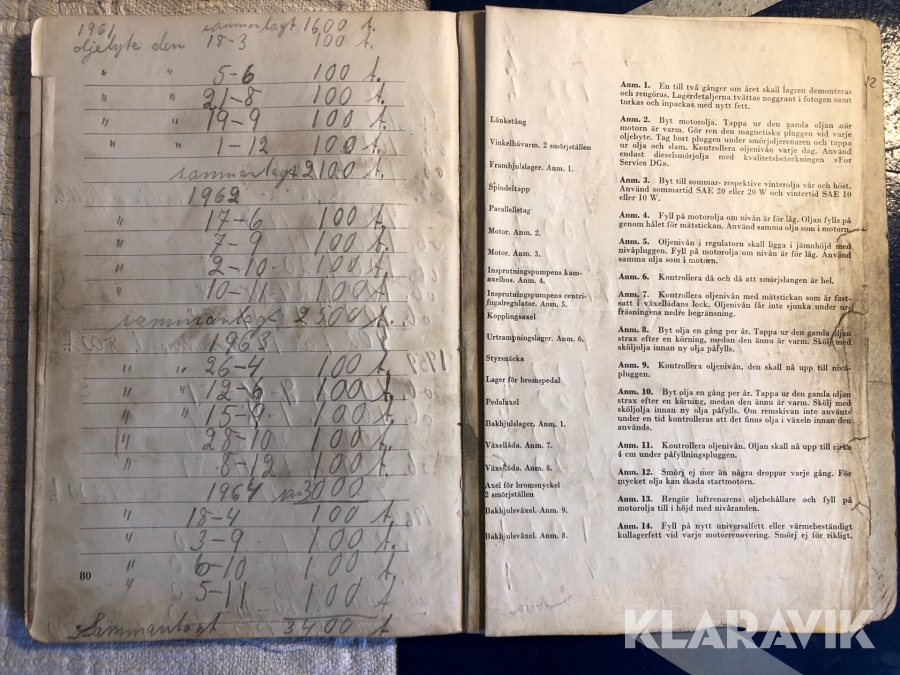 1961 sammanlagt 1600 t.
oljebyte den 18-3 100 t.
" " 5-6 100 t.
" " 21-8 100 t.
" " 19-9 100 t.
" " 1-12 100 t.
sammanlagt 2100 t.
1962
" 17-6 100 t.
" 7-9 100 t.
" 2-10 100 t.
" 10-11 100 t.
sammanlagt 2500 t.
1963
" " 26-4 100 t.
" " 12-6 100 t.
" " 15-9 100 t.
" 28-10 100 t.
" 8-12 100 t.
1964 3000
" 18-4 100 t.
" 3-9 100 t.
" 6-10 100 t.
" 5-11 100 t.
80
Sammanlagt 3400 t
Länkstång
Vinkelhävarm. 2 smörjställen
Framhjulslager. Anm. 1.
Spindeltapp
Parallellstag
Motor. Anm. 2.
Motor. Anm. 3.
Insprutningspumpens kam-
axelhus. Anm. 4.
Insprutningspumpens centri-
fugalregulator. Anm. 5.
Kopplingsaxel
Urtrampningslager. Anm. 6.
Styrsnäcka
Lager för bromspedal
Pedalaxel
Bakhjulslager, Anm. 1.
Växellåda. Anm. 7.
Växellåda. Anm. 8.
Axel för bromsnyckel
2 smörjställen
Bakhjulsväxel. Anm. 9.
Bakhjulsväxel. Anm. 8.
12
Anm. 1. En till två gånger om året skall lagren demonteras
och rengöras. Lagerdetaljerna tvättas noggrant i fotogen samt
torkas och inpackas med nytt fett.
Anm. 2. Byt motorolja. Tappa ur den gamla oljan när
motorn är varm. Gör ren den magnetiska pluggen vid varje
oljebyte. Tag bort pluggen under smörjoljerenaren och tappa
ur olja och slam. Kontrollera oljenivån varje dag. Använd
endast dieselsmörjolja med kvalitetsbeteckningen »For
Service DG».
Anm. 3. Byt till sommar- respektive vinterolja vår och höst.
Använd sommartid SAE 20 eller 20 W och vintertid SAE 10
eller 10 W.
Anm. 4. Fyll på motorolja om nivån är för låg. Oljan fylls på
genom hålet för mätstickan. Använd samma olja som i motorn.
Anm. 5. Oljenivån i regulatorn skall ligga i jämnhöjd med
nivåpluggen. Fyll på motorolja om nivån är för låg. Använd
samma olja som i motorn.
Anm. 6. Kontrollera då och då att smörjslangen är hel.
Anm. 7. Kontrollera oljenivån med mätstickan som är fast-
satt i växellådans lock. Oljenivån får inte sjunka under ur-
fräsningens nedre begränsning.
Anm. 8. Byt olja en gång per år. Tappa ur den gamla oljan
strax efter en körning, medan den ännu är varm. Skölj med
sköljolja innan ny olja påfylls.
Anm. 9. Kontrollera oljenivån, den skall nå upp till nivå-
pluggen.
Anm. 10. Byt olja en gång per år. Tappa ur den gamla oljan
strax efter en körning, medan den ännu är varm. Skölj med
sköljolja innan ny olja påfylls. Om remskivan inte använts
under en tid kontrolleras att det finns olja i växeln innan den
används.
Anm. 11. Kontrollera oljenivån. Oljan skall nå upp till cirka
4 cm under påfyllningspluggen.
Anm. 12. Smörj ej mer än några droppar varje gång. För
mycket olja kan skada startmotorn.
Anm. 13. Rengör luftrenarens oljebehållare och fyll på
motorolja till i höjd med nivåranden.
Anm. 14. Fyll på nytt universalfett eller värmebeständigt
kullagerfett vid varje motorrenovering. Smörj ej för rikligt.
KLARAVIK